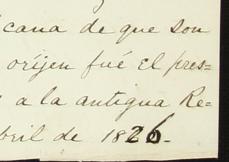 cana de que son
orijen fué el pres=
a la antigua Re=
bril de 1826.